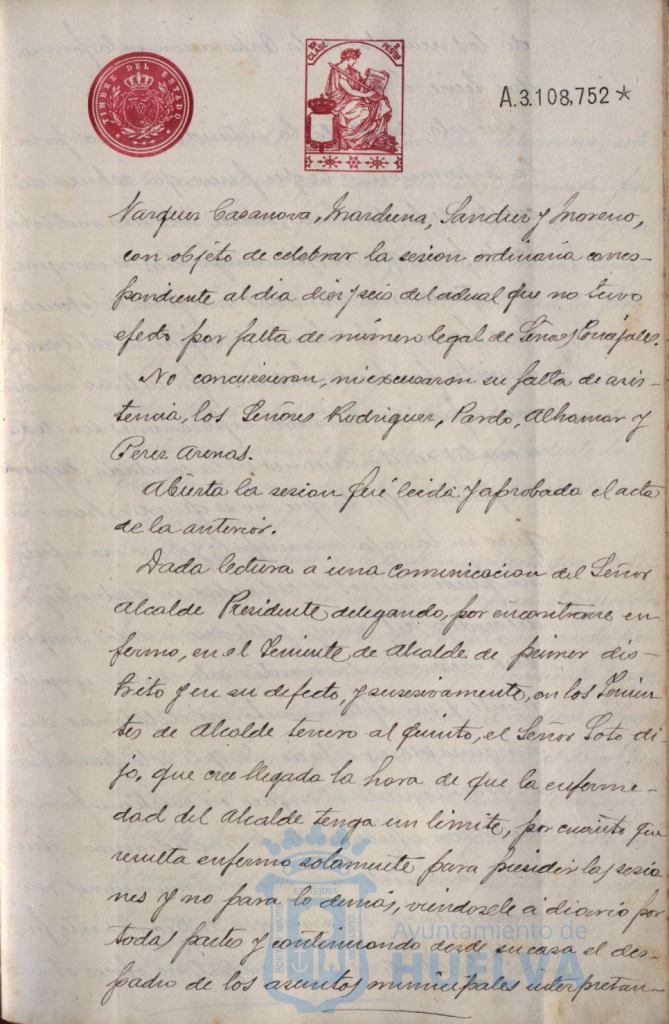 TIMBRE DEL ESTADO
10ª CLASE
2 PESETAS
A.3.108,752*
Vazquez Casanova, Mardiena, Sanchez y Moreno,
con objeto de celebrar la sesion ordinaria corres-
pondiente al dia diez y seis del actual que no tuvo
efecto por falta de número legal de Señores Concejales.
No concurrieron, ni excusaron su falta de asis-
tencia, los Señores Rodriguez, Pardo, Alhamar y
Perez Arenas.
Abierta la sesion fué leida y aprobada el acta
de la anterior.
Dada lectura á una comunicacion del Señor
Alcalde Presidente delegando, por encontrarse en-
fermo, en el Teniente de Alcalde de primer dis-
trito y en su defecto, y sucesivamente, en los Tenien-
tes de Alcalde tercero al quinto, el Señor Soto di-
jo, que cree llegada la hora de que la enferme-
dad del Alcalde tenga un limite, por cuanto que
resulta enfermo solamente para presidir las sesio
nes y no para lo demás, viéndosele á diario por
todas partes y continuando desde su casa el des-
pacho de los asuntos municipales interpretan-
Ayuntamiento de
HUELVA